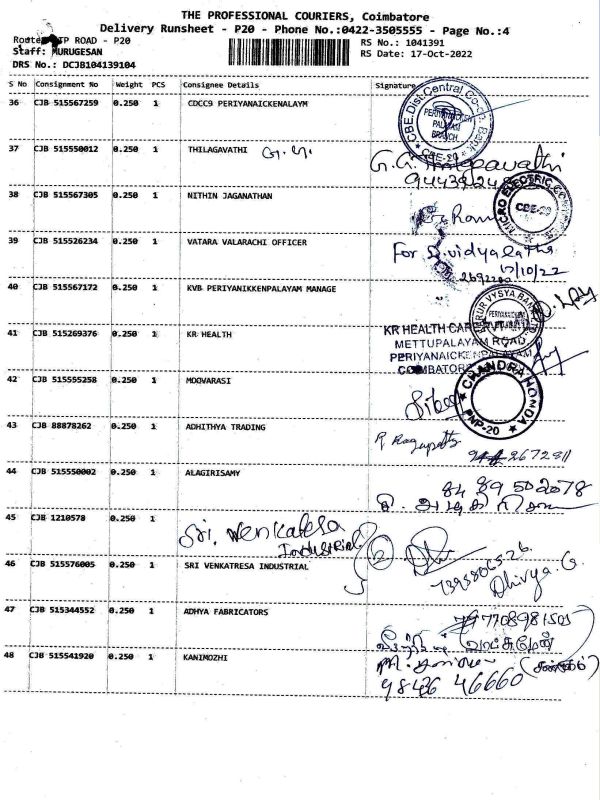 THE PROFESSIONAL COURIERS, Coimbatore
Delivery Runsheet - P20 - Phone No.:0422-3505555 - Page No.:4
TP ROAD - P20
Staff: MURUGESAN
DRS No.: DCJB104139104
RS No.: 1041391
RS Date: 17-Oct-2022
S No Consignment No Weight PCS Consignee Details Signature
36 CJB 515567259 0.250 1 CDCC9 PERIYANAICKENALAYM
CBE.Dist.Central Co-op. Bank
PERIYANAICKEN
PALAYAM
BRANCH
CBE-20
37 CJB 515550012 0.250 1 THILAGAVATHI
G. G. Thilagavathi
38 CJB 515567305 0.250 1 NITHIN JAGANATHAN
MICRO ELECTRIC
39 CJB 515526234 0.250 1 VATARA VALARACHI OFFICER
For S.vidyalatha
17/10/22
40 CJB 515567172 0.250 1 KVB PERIYANIKKENPALAYAM MANAGE
KARUR VYSYA BANK
41 CJB 515269376 0.250 1 KR HEALTH
KR HEALTH CARE PVT
METTUPALAYAM ROAD
PERIYANAICKENPALAYAM
COIMBATORE
42 CJB 515555258 0.250 1 MOOVARASI
CHANDRA HONDA
PNP-20
43 CJB 88878262 0.250 1 ADHITHYA TRADING
R. Ragupathi
44 CJB 515550002 0.250 1 ALAGIRISAMY
84 89 502078
45 CJB 1210578 0.250 1
Sri. Venkatesa
Industrial
2
46 CJB 515576005 0.250 1 SRI VENKATRESA INDUSTRIAL
Dhivya. G
47 CJB 515344552 0.250 1 ADHYA FABRICATORS
7708981501
48 CJB 515541920 0.250 1 KANIMOZHI
98436 46660